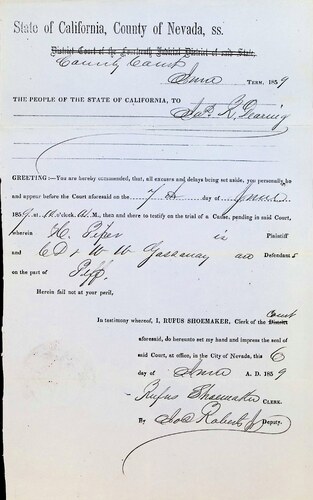 State of California, County of Nevada, ss.
District Court of the Fourteenth Judicial District of said State.
County Court
June TERM, 1859
THE PEOPLE OF THE STATE OF CALIFORNIA, TO
R. Dearing
GREETING:—You are hereby commanded, that, all excuses and delays being set aside, you personally be
and appear before the Court aforesaid on the 7th day of June
1859, at 10 o'clock, A. M., then and there to testify on the trial of a Cause, pending in said Court,
wherein H. Pifer is Plaintiff
and C D & W W Gassaway are Defendants
on the part of Plff.
Herein fail not at your peril,
Court
In testimony whereof, I, RUFUS SHOEMAKER, Clerk of the District
aforesaid, do hereunto set my hand and impress the seal of
said Court, at office, in the City of Nevada, this 6
day of June A. D. 1859
Rufus Shoemaker CLERK.
By Roberts Jr Deputy.